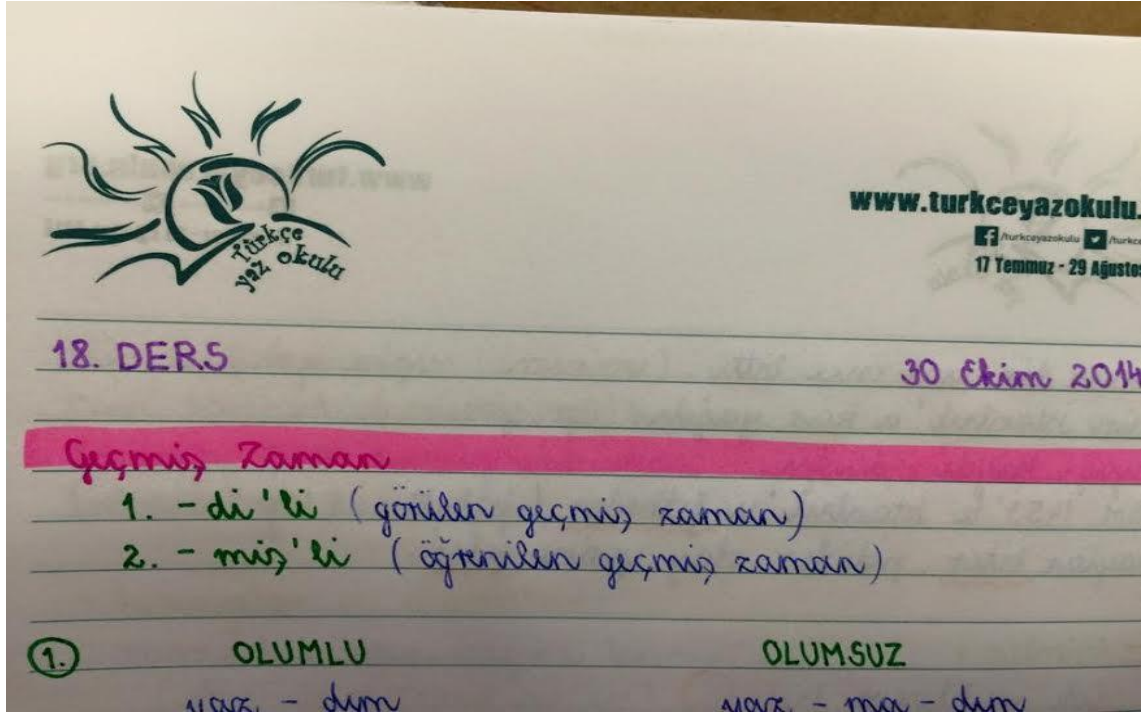 Türkçe
yaz okulu
www.turkceyazokulu.
/turkceyazokulu /turkce
17 Temmuz - 29 Ağustos
18. DERS
30 Ekim 2014
Geçmiş Zaman
1. - di'li (görülen geçmiş zaman)
2. - miş'li (öğrenilen geçmiş zaman)
1. OLUMLU OLUMSUZ
yaz - dım yaz - ma - dım